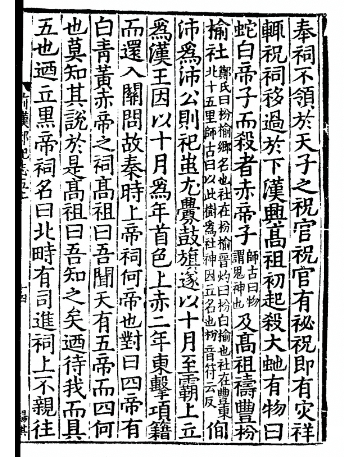 奉祠不領於天子之祝官祝官有秘祝即有灾祥
輙祝祠移過於下漢興髙祖初起殺大虵有物曰
蛇白帝子而殺者赤帝子師古曰物謂鬼神也及髙祖禱豐枌
榆社鄭氏曰枌榆鄉名也社在枌榆晉灼曰枌白榆也社在豐東北十五里師古曰以此樹為社神因立名也枌音符云反侚
沛為沛公則祀蚩尤釁鼓旗遂以十月至霸上立
為漢王因以十月為年首色上赤二年東擊項籍
而還入關問故秦時上帝祠何帝也對曰四帝有
白青黃赤帝之祠髙祖曰吾聞天有五帝而四何
也莫知其說於是髙祖曰吾知之矣迺待我而具
五也迺立黑帝祠名曰北畤有司進祠上不親往